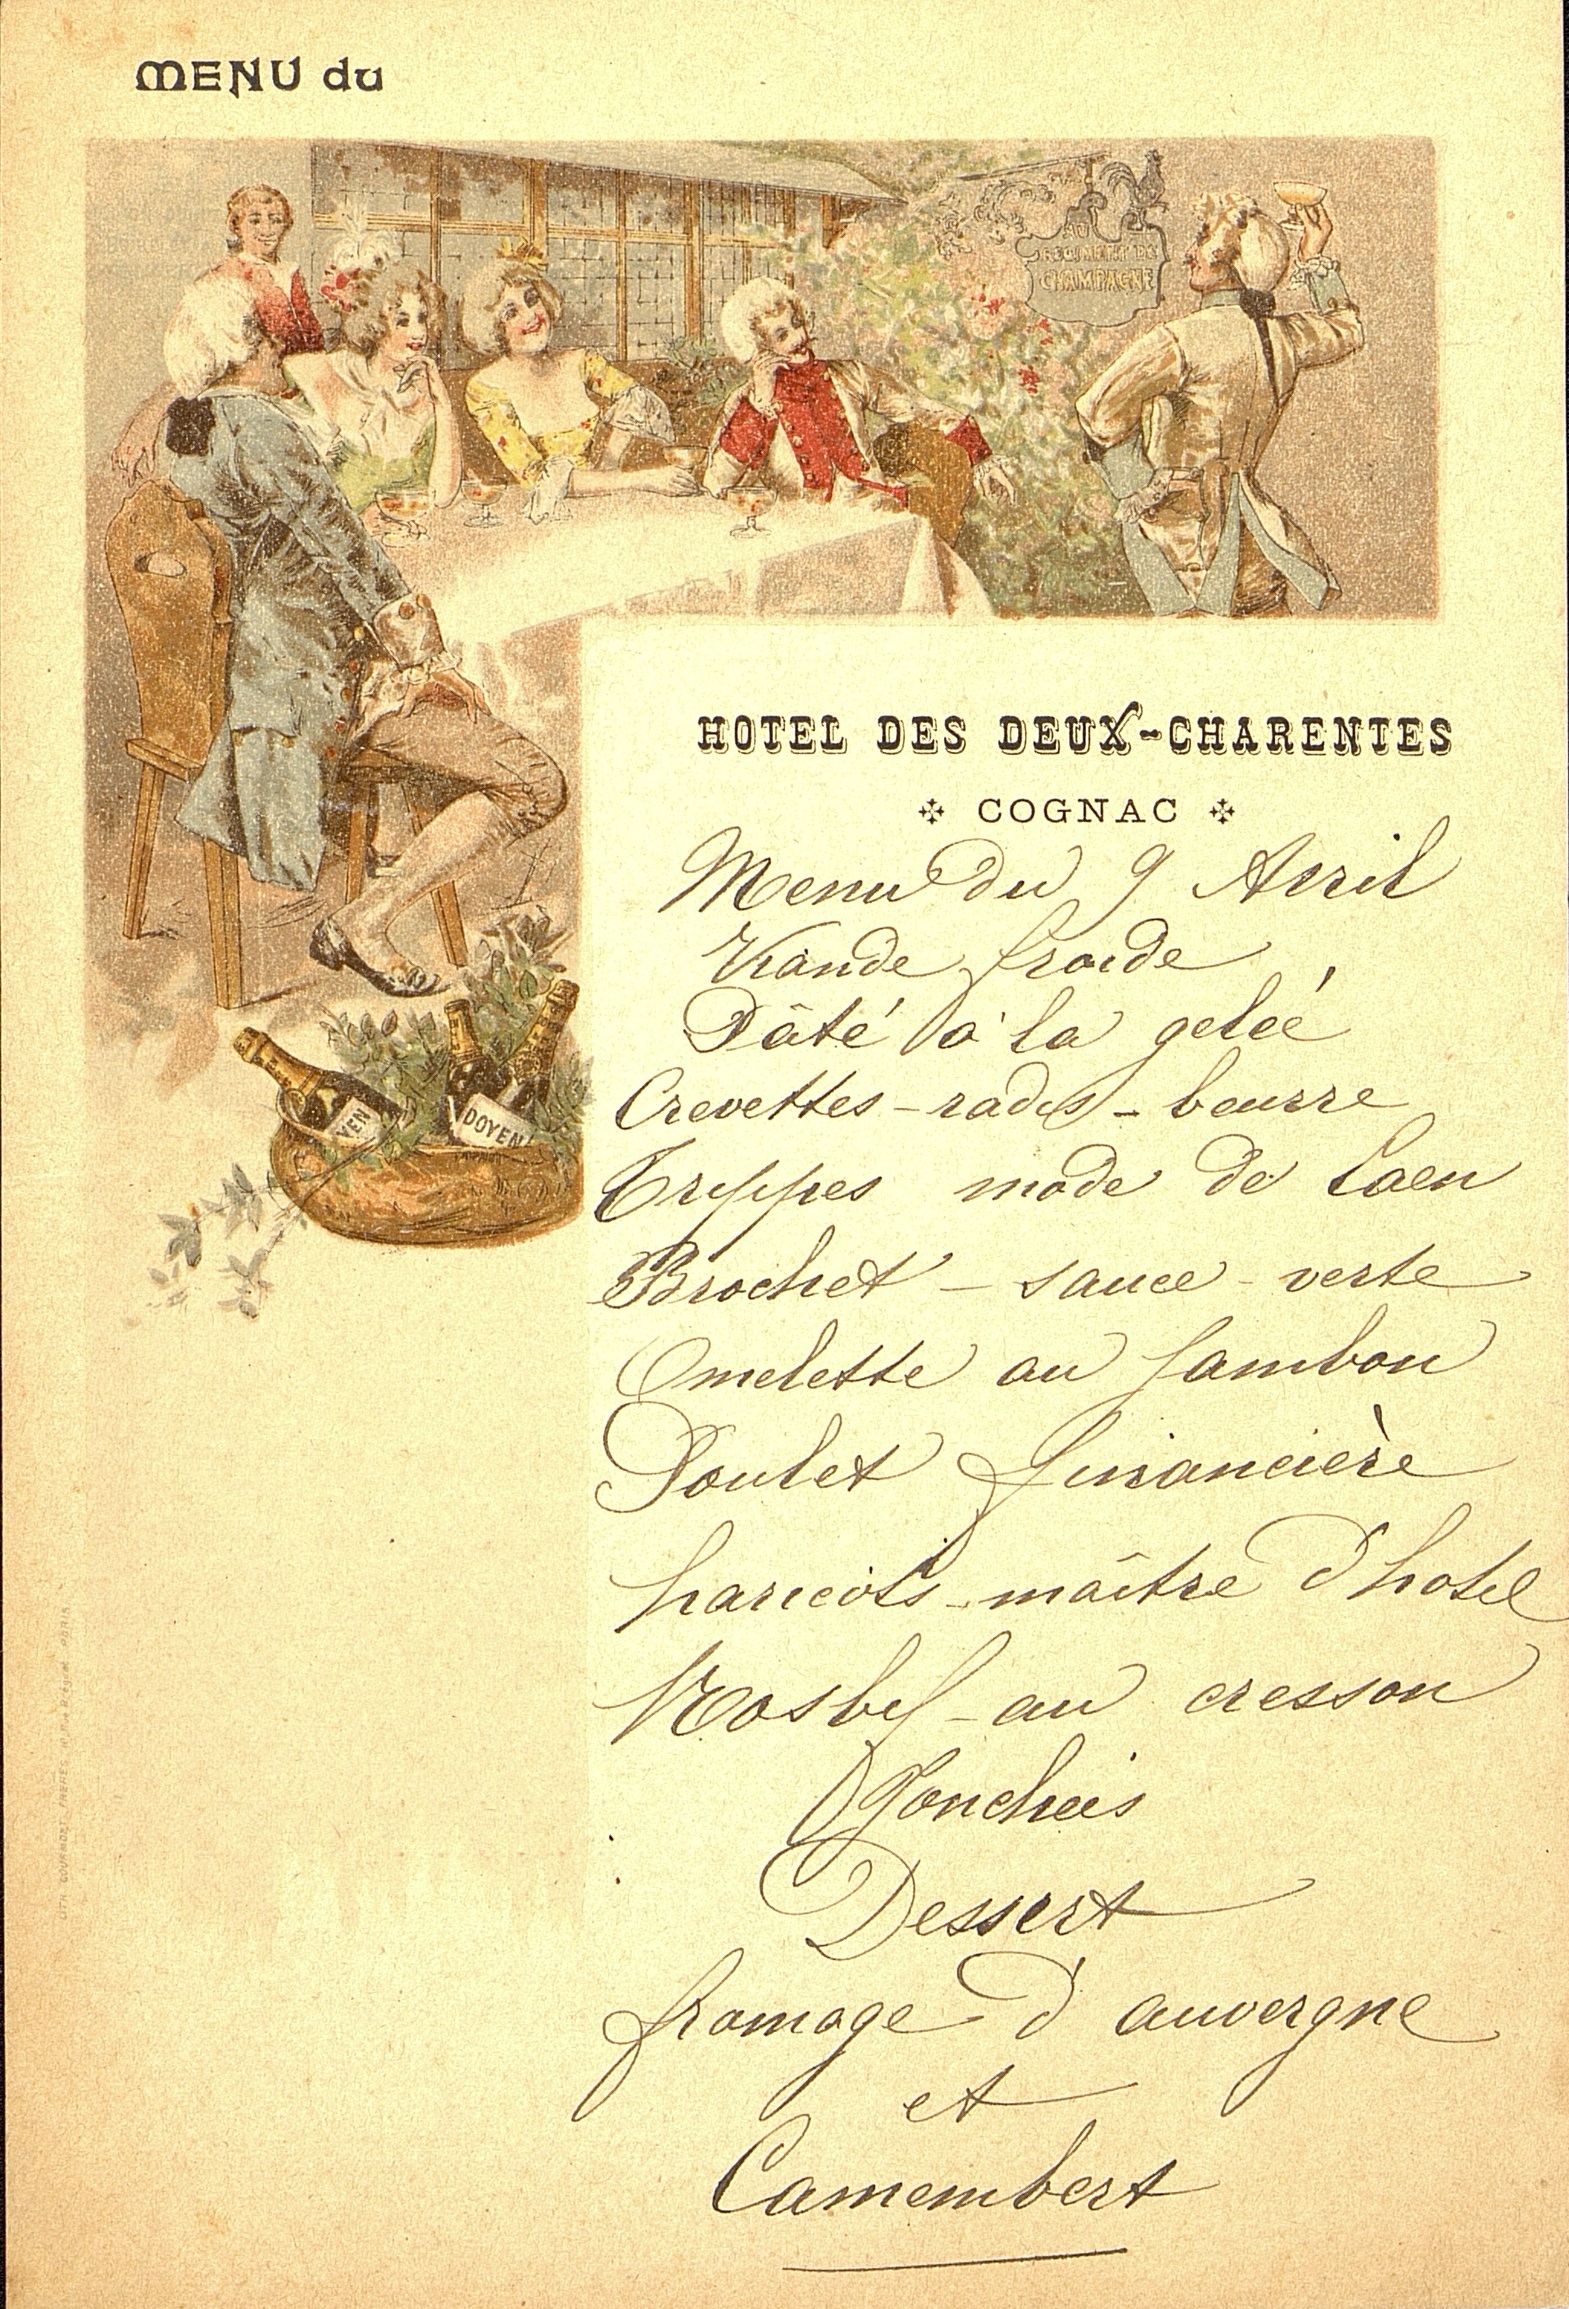 MENU du
AU
REGIMENT DE
CHAMPAGNE
HOTEL DES DEUX-CHARENTES
COGNAC
Menu du 9 Avril
Viande froide
Pâté à la gelée
Crevettes - radis - beurre
Trippes mode de Caen
YEN
DOYEN
Brochet - sauce - verte
Omelette au Jambon
Poulet financière
haricots - maître d'hotel
Rosbif - au cresson
Jonchées
Dessert
fromage d'auvergne
et
Camembert